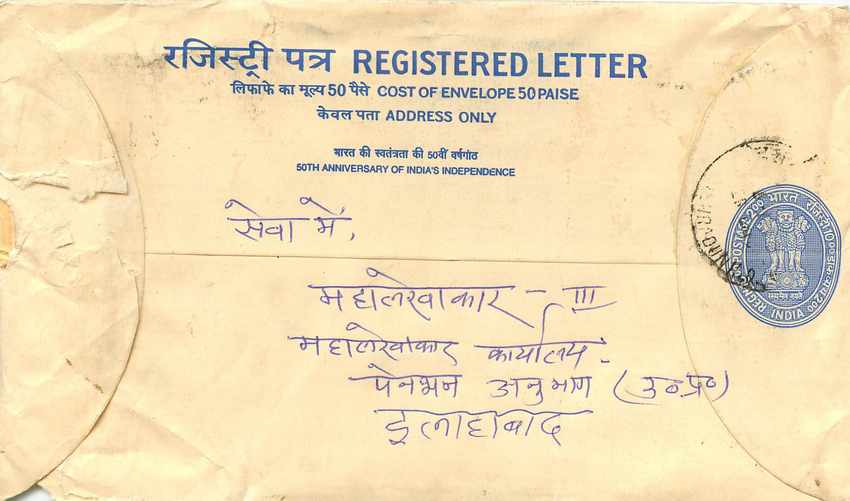 रजिस्ट्री पत्र REGISTERED LETTER
लिफाफे का मूल्य 50 पैसे COST OF ENVELOPE 50 PAISE
केवल पता ADDRESS ONLY
भारत की स्वतंत्रता की 50वीं वर्षगांठ
50TH ANNIVERSARY OF INDIA'S INDEPENDENCE
सेवा में,
महालेखाकार - III
महालेखाकार कार्यालय
पेनशन अनुभाग (उ०प्र०)
इलाहाबाद
भारत
सत्यमेव जयते
INDIA